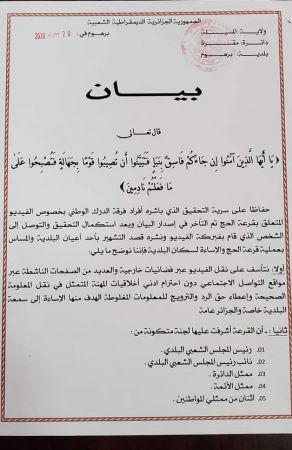 الجمهورية الجزائرية الديمقراطية الشعبية
ولاية: المسيلة
دائرة: مقرة
بلدية: برهوم
برهوم في: 20 2020
بيـــان
قال تعالى
﴿يَا أَيُّهَا الَّذِينَ آمَنُوا إِن جَاءَكُمْ فَاسِقٌ بِنَبَإٍ فَتَبَيَّنُوا أَن تُصِيبُوا قَوْمًا بِجَهَالَةٍ فَتُصْبِحُوا عَلَىٰ
مَا فَعَلْتُمْ نَادِمِينَ﴾
حفاظا على سرية التحقيق الذي باشره أفراد فرقة الدرك الوطني بخصوص الفيديو
المتعلق بقرعة الحج تم التأخر في إصدار البيان وبعد استكمال التحقيق والتوصل إلى
الشخص الذي قام بفبركة الفيديو ونشره قصد التشهير بأحد أعيان البلدية والمساس
بعملية قرعة الحج والإساءة لسكان البلدية فإننا نوضح ما يلي:
أولا: نتأسف على نقل الفيديو عبر فضائيات خارجية والعديد من الصفحات الناشطة عبر
مواقع التواصل الاجتماعي دون احترام أدنى أخلاقيات المهنة المتمثل في نقل المعلومة
الصحيحة وإعطاء حق الرد والترويج للمعلومات المغلوطة الهدف منها الإساءة إلى سمعة
البلدية خاصة والجزائر عامة
ثانيا: أن القرعة أشرفت عليها لجنة متكونة من:
01. رئيس المجلس الشعبي البلدي.
02. نائب رئيس المجلس الشعبي البلدي.
03. ممثل الدائرة.
04. ممثل الأئمة.
05. اثنان من ممثلي المواطنين.